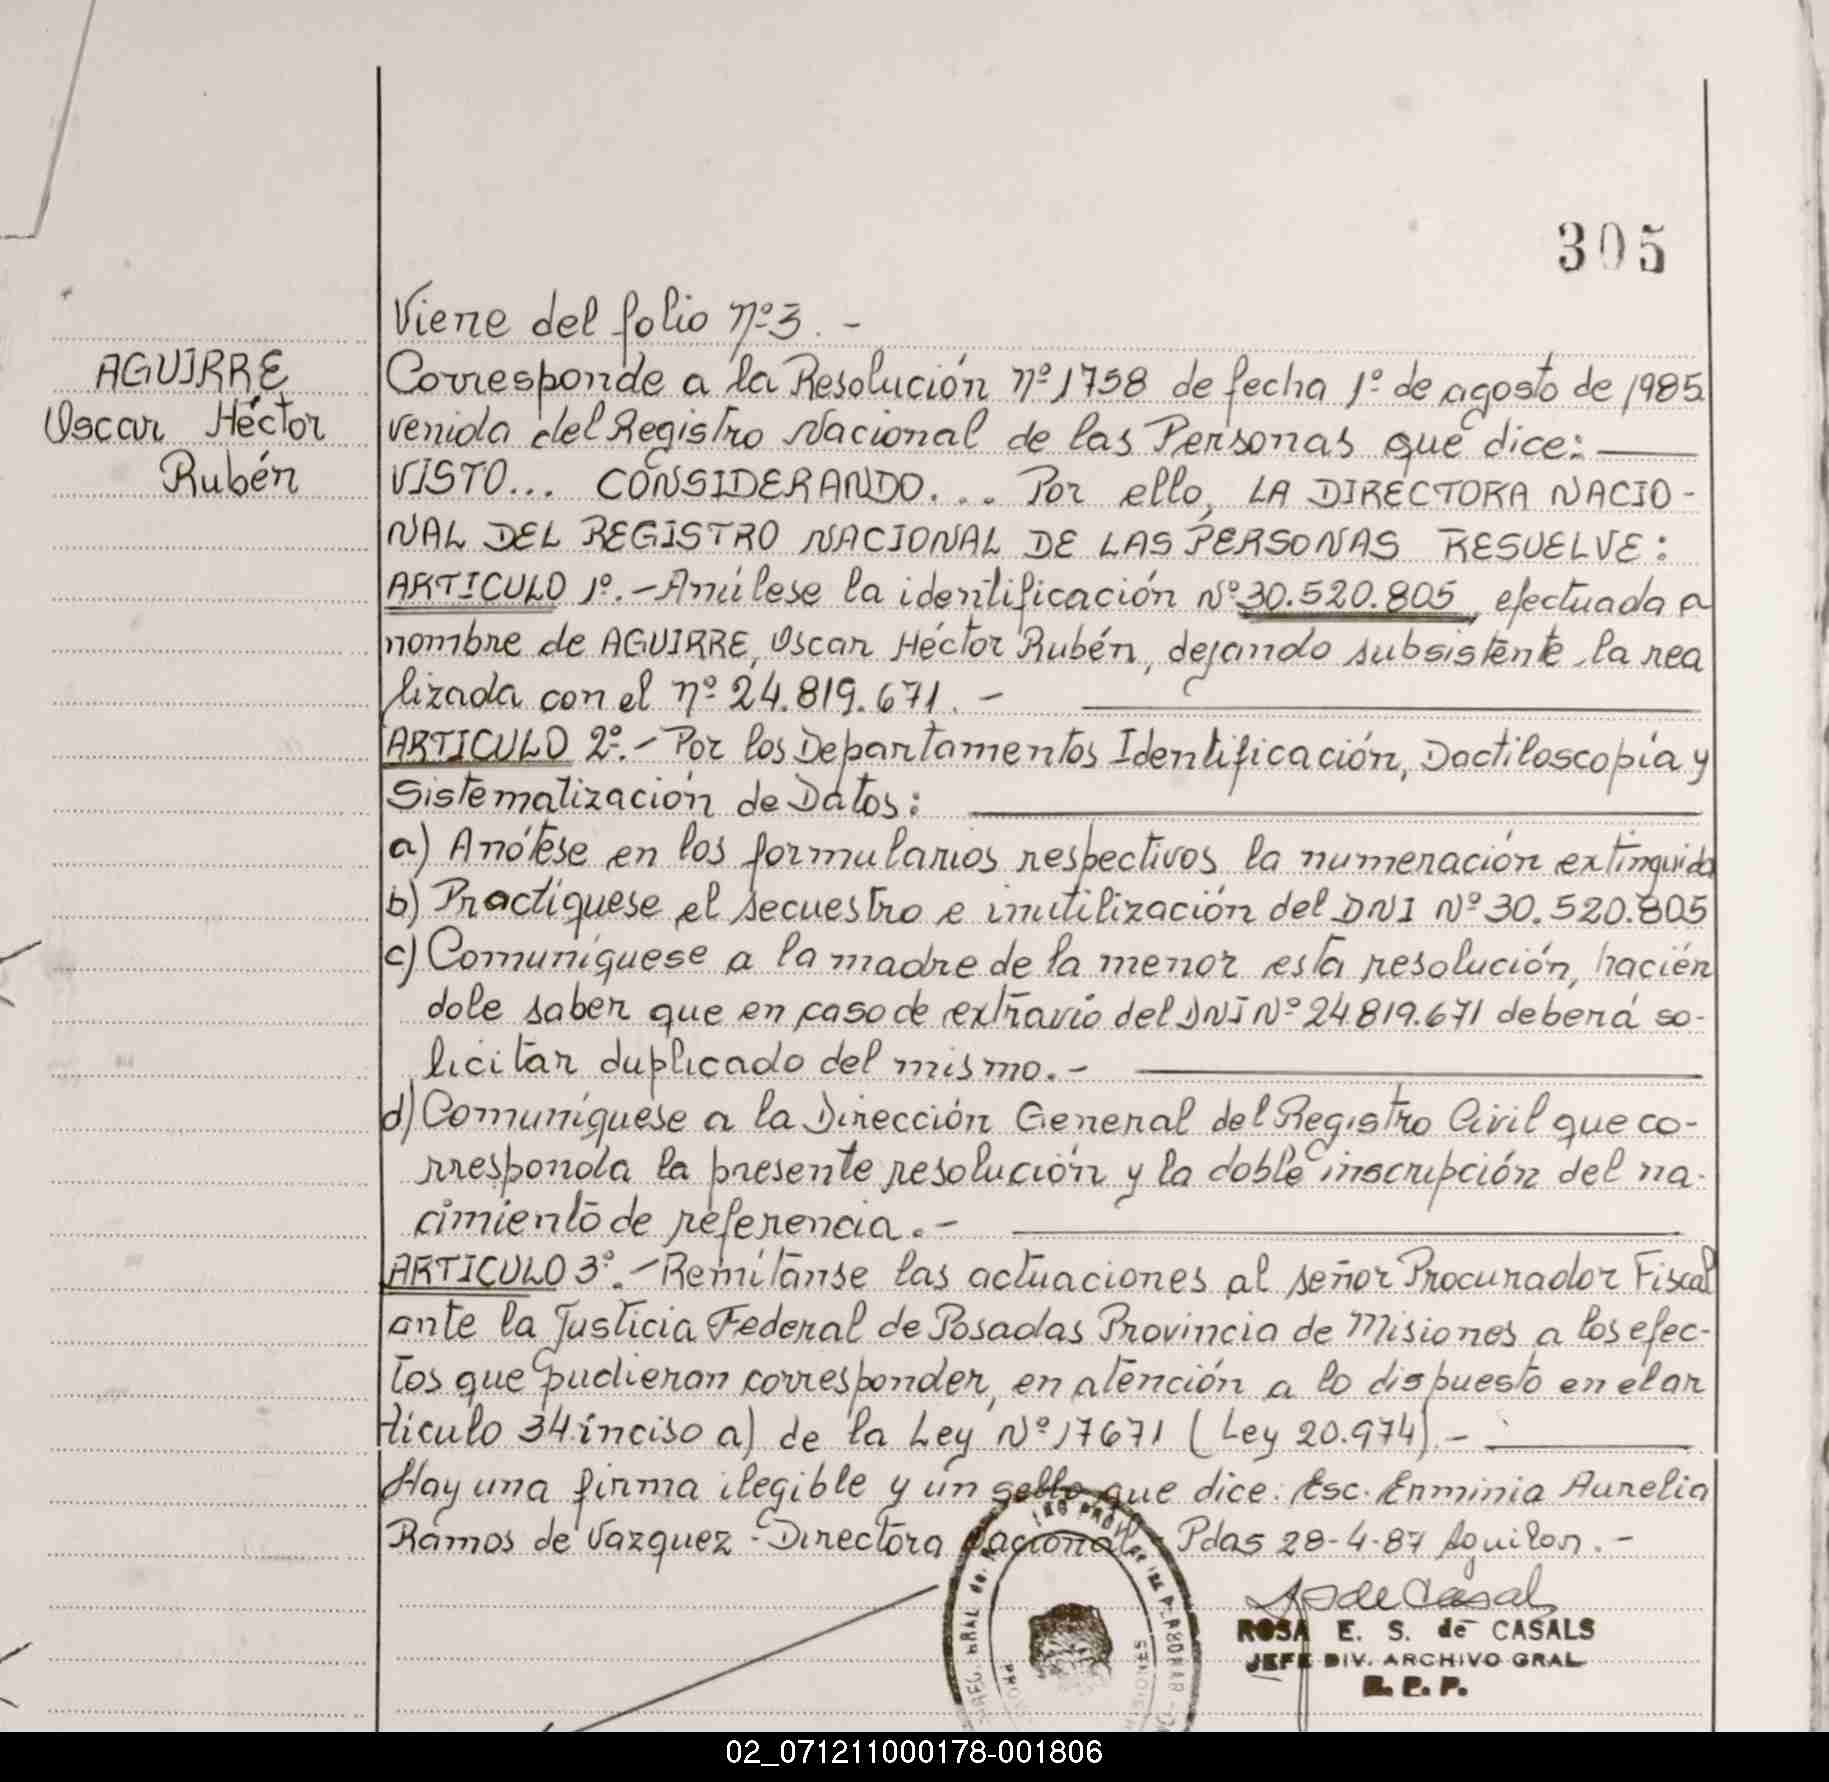 305
Viene del folio nº 3. -
AGUIRRE
Oscar Héctor
Rubén
Corresponde a la Resolución nº 1758 de fecha 1º de agosto de 1985
venida del Registro Nacional de las Personas que dice:
VISTO... CONSIDERANDO... Por ello, LA DIRECTORA NACIO-
NAL DEL REGISTRO NACIONAL DE LAS PERSONAS RESUELVE:
ARTICULO 1º.- Anúlese la identificación Nº 30.520.805, efectuada a
nombre de AGUIRRE, Oscar Héctor Rubén, dejando subsistente la rea
lizada con el nº 24.819.671. -
ARTICULO 2º.- Por los Departamentos Identificación, Dactiloscopía y
Sistematización de Datos:
a) Anótese en los formularios respectivos la numeración extinguida
b) Practíquese el secuestro e inutilización del DNI Nº 30.520.805
c) Comuníquese a la madre de la menor esta resolución, hacién
dole saber que en caso de extravío del DNI Nº 24819.671 deberá so-
licitar duplicado del mismo.-
d) Comuníquese a la Dirección General del Registro Civil que co-
rresponda la presente resolución y la doble inscripción del na-
cimiento de referencia.-
ARTICULO 3º.- Remítanse las actuaciones al señor Procurador Fiscal
ante la Justicia Federal de Posadas Provincia de Misiones a los efec-
tos que pudieran corresponder, en atención a lo dispuesto en el ar
tículo 34 inciso a) de la Ley Nº 17671 (Ley 20.974).-
Hay una firma ilegible y un sello que dice. Esc. Erminia Aurelia
Ramos de Vazquez - Directora Nacional - Pdas 28-4-87 Aguilar. -
S de Casal
ROSA E. S. de CASALS
JEFE DIV. ARCHIVO GRAL
R. P. P.
02_071211000178-001806